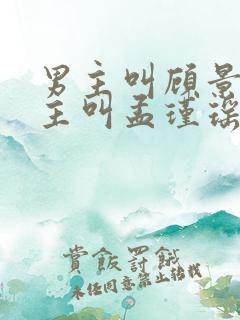 男主叫顾景
主叫孟瑾瑶
赏饭罚饿
未经同意禁止转载